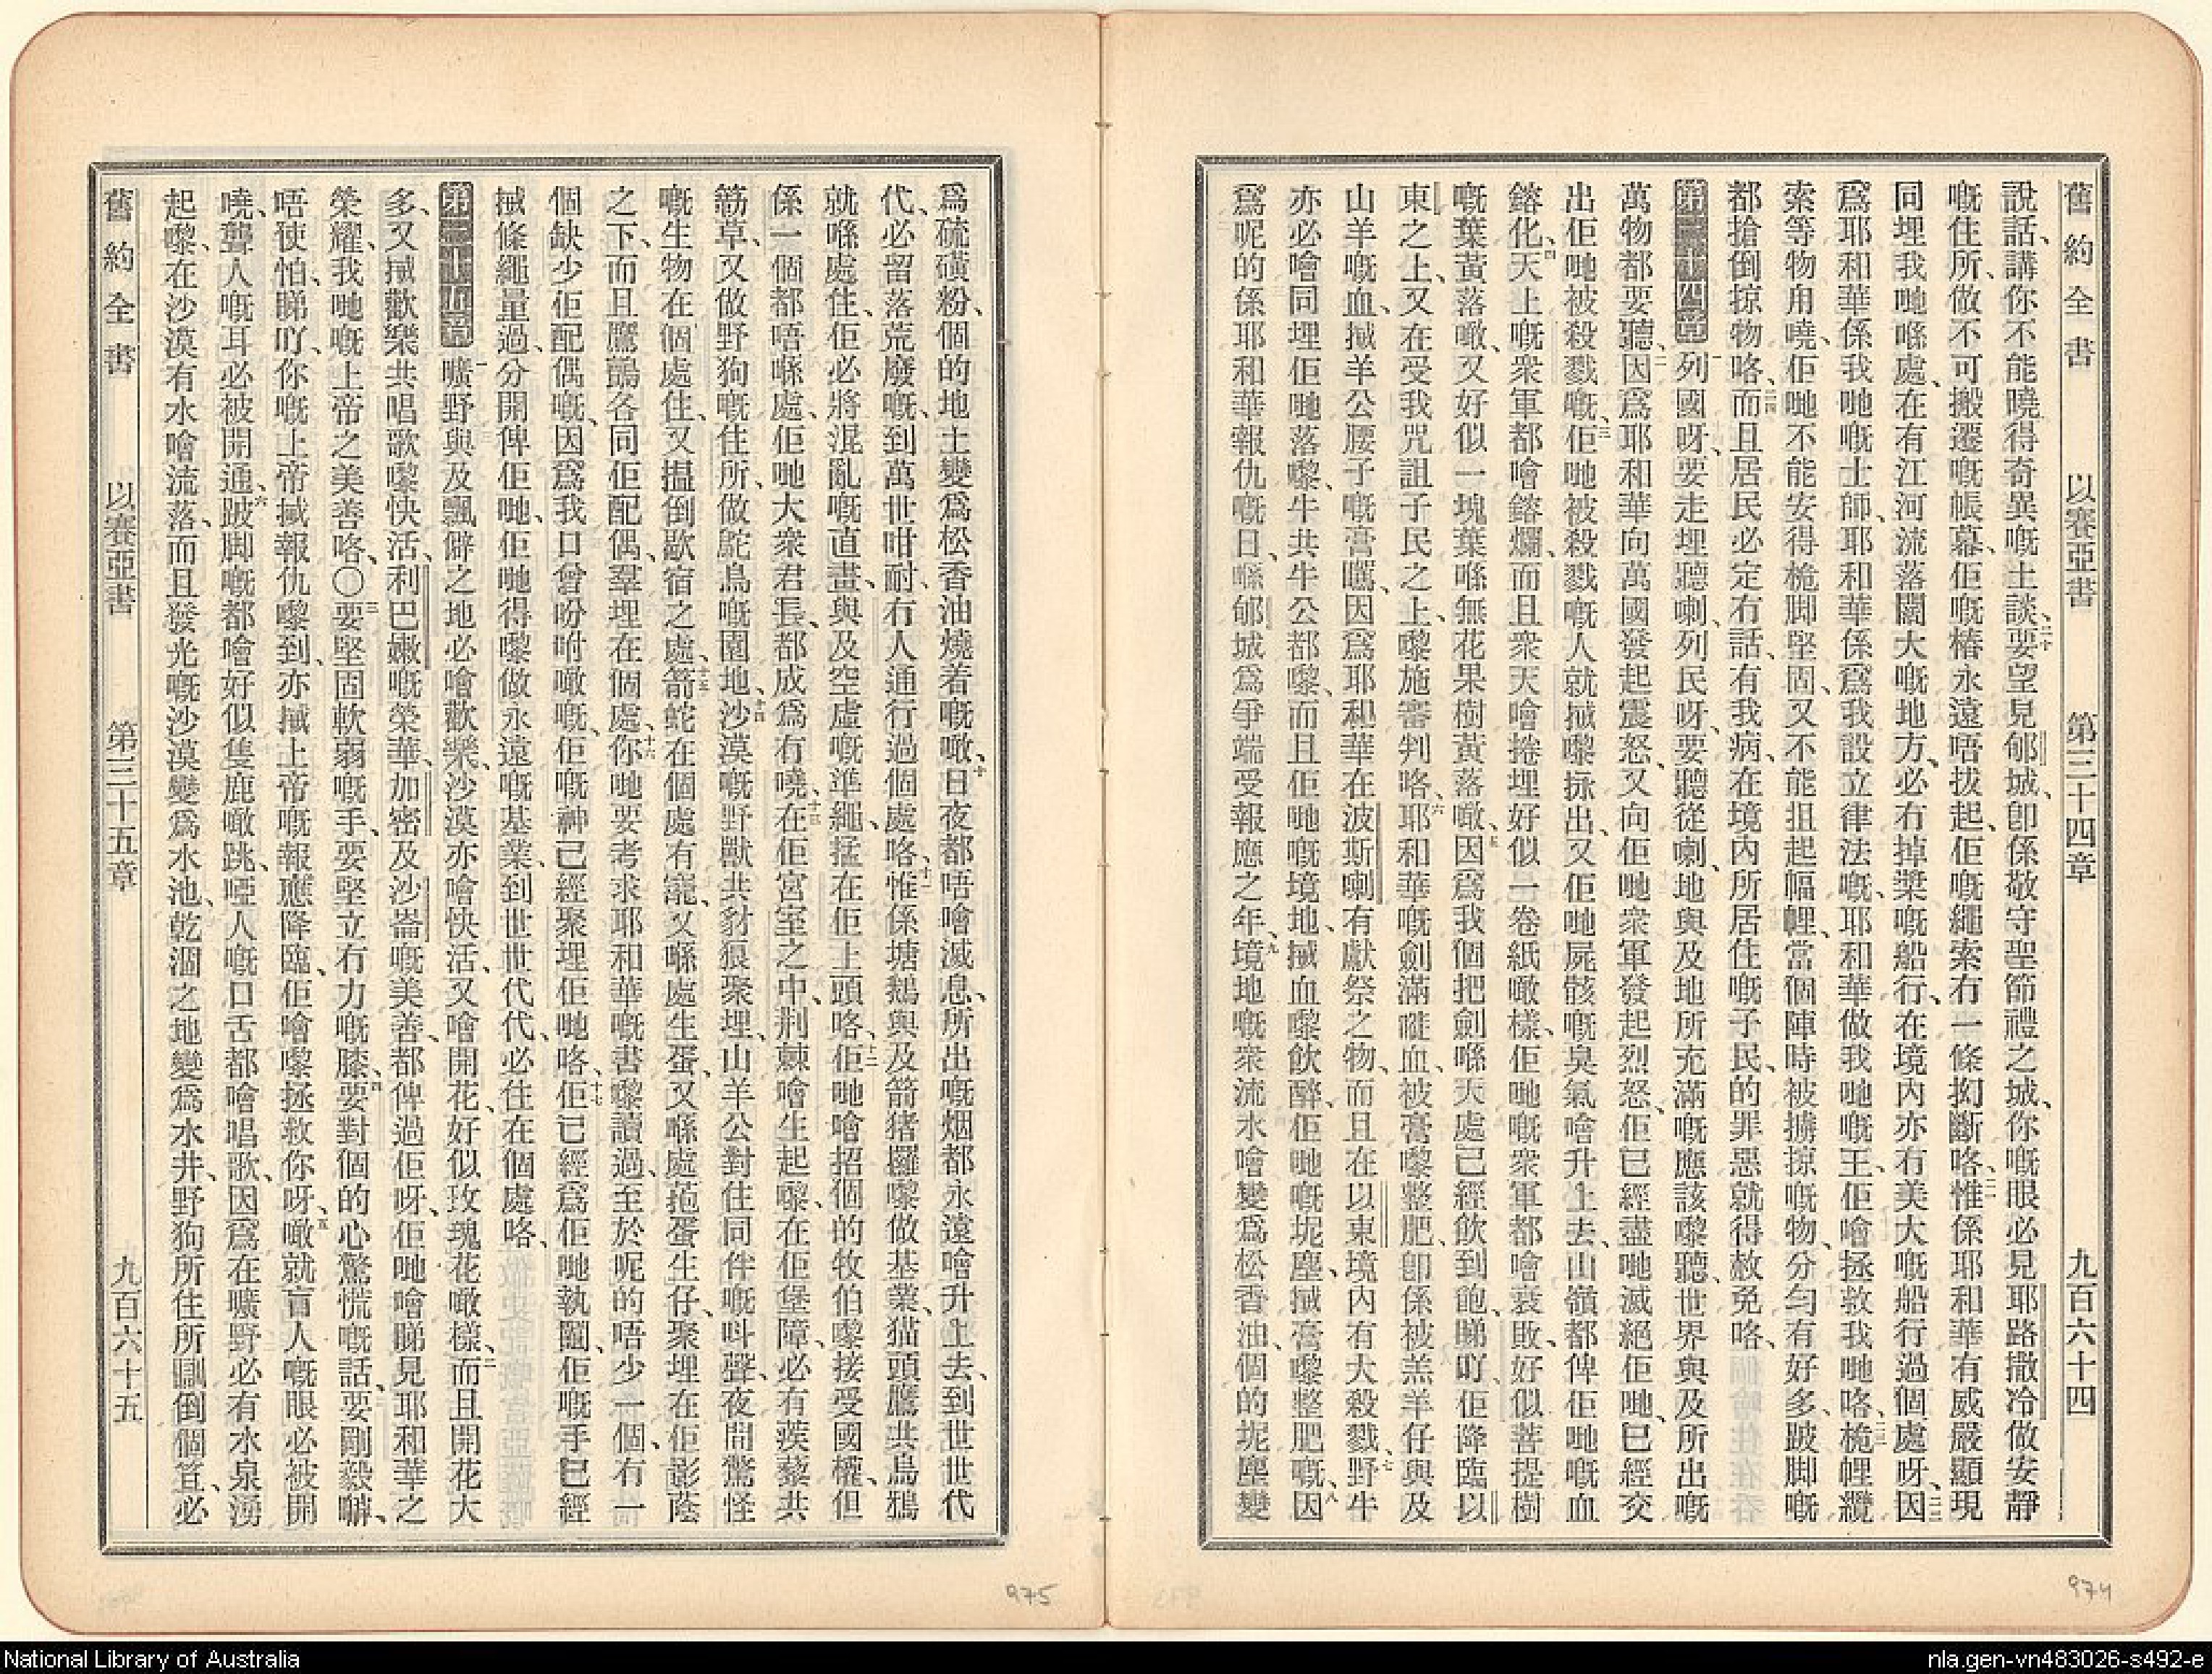 舊約全書 以賽亞書 第三十四章 九百六十四
說話、講你不能曉得奇異嘅土談、二十要望見郇城、卽係敬守聖節禮之城、你嘅眼必見耶路撒冷做安靜
嘅住所、做不可搬遷嘅帳幕、佢嘅樁永遠唔拔起、佢嘅繩索冇一條拗斷咯、二一惟係耶和華有威嚴顯現
同埋我哋喺處、在有江河流落闊大嘅地方、必冇掉槳嘅船行、在境內亦冇美大嘅船行過個處呀、二二因
爲耶和華係我哋嘅士師、耶和華係爲我設立律法嘅、耶和華做我哋嘅王、佢噲拯救我哋咯、二三桅𢃇纜
索等物甪曉、佢哋不能安得桅脚堅固、又不能扯起幅𢃇、當個陣時被擄掠嘅物、分勻有好多、跛脚嘅
都搶倒掠物咯、二四而且居民必定冇話、有我病、在境內所居住嘅子民、的罪惡就得赦免咯、
第三十四章 一列國呀、要走埋聽喇、列民呀、要聽從喇、地與及地所充滿嘅應該嚟聽、世界與及所出嘅
萬物都要聽、二因爲耶和華向萬國發起震怒、又向佢哋衆軍發起烈怒、佢已經盡哋滅絕佢哋、已經交
出佢哋被殺戮嘅、三佢哋被殺戮嘅人就搣嚟拯出、又佢哋屍骸嘅臭氣噲升上去、山嶺都俾佢哋嘅血
鎔化、四天上嘅衆軍都噲鎔爛、而且衆天噲捲埋好似一卷紙噉樣、佢哋嘅衆軍都噲衰敗、好似菩提樹
嘅葉黃落噉、又好似一塊葉喺無花果樹黃落噉、五因爲我個把劍喺天處已經飲到飽、睇吖佢降臨以
東之上、又在受我咒詛子民之上、嚟施審判咯、六耶和華嘅劍滿嘥血、被膏嚟整肥、卽係被羔羊仔與及
山羊嘅血、搣羊公腰子嘅膏嘅、因爲耶和華在波斯喇有獻祭之物、而且在以東境內有大殺戮、七野牛
亦必噲同埋佢哋落嚟、牛共牛公都嚟、而且佢哋嘅境地、搣血嚟飲醉、佢哋嘅坭塵、搣膏嚟整肥嘅、八因
爲呢的係耶和華報仇嘅日、喺郇城爲爭端受報應之年、九境地嘅衆流水噲變爲松香油、個的坭塵變
爲硫磺粉、個的地土變爲松香油燒着嘅噉、十日夜都唔噲滅息、所出嘅烟都永遠噲升上去、到世世代
代、必留落荒廢嘅、到萬世咁耐、冇人通行過個處咯、十一惟係塘鵝與及箭猪攞嚟做基業、猫頭鷹共烏鴉
就喺處住、佢必將混亂嘅直畫、與及空虛嘅準繩、掹在佢上頭咯、十二佢哋噲招個的牧伯嚟接受國權、但
係一個都唔喺處、佢哋大衆君長、都成爲冇曉、十三在佢宮室之中、荆棘噲生起嚟、在佢堡障、必有蒺藜共
簕草、又做野狗嘅住所、做鴕鳥嘅園地、十四沙漠嘅野獸共豺狼聚埋、山羊公對住同伴嘅呌聲、夜間驚怪
嘅生物在個處住、又搵倒歇宿之處、十五箭蛇在個處有竉、又喺處生蛋、又喺處菢蛋生仔、聚埋在佢影蔭
之下、而且鷹鸇各同佢配偶、羣埋在個處、十六你哋要考求耶和華嘅書嚟讀過、至於呢的唔少一個、冇一
個缺少佢配偶嘅、因爲我口曾吩咐噉嘅、佢嘅神已經聚埋佢哋咯、十七佢已經爲佢哋執鬮、佢嘅手已經
搣條繩量過、分開俾佢哋、佢哋得嚟做永遠嘅基業、到世世代代、必住在個處咯、
第三十五章 一曠野與及飄僻之地必噲歡樂、沙漠亦噲快活、又噲開花、好似玫瑰花噉樣、二而且開花大
多、又搣歡樂共唱歌嚟快活、利巴嫩嘅榮華、加密及沙崙嘅美善、都俾過佢呀、佢哋噲睇見耶和華之
榮耀、我哋嘅上帝之美善咯、〇三要堅固軟弱嘅手、要堅立冇力嘅膝、四要對個的心驚慌嘅話、要剛毅嚹、
唔使怕、睇吖、你嘅上帝搣報仇嚟到、亦搣上帝嘅報應降臨、佢噲嚟拯救你呀、五噉就盲人嘅眼必被開
曉、聾人嘅耳必被開通、六跛脚嘅都噲好似隻鹿噉跳、啞人嘅口舌都噲唱歌、因爲在曠野必有水泉湧
起嚟、在沙漠有水噲流落、而且發光嘅沙漠變爲水池、乾涸之地變爲水井、野狗所住所瞓倒個笪、必
舊約全書 以賽亞書 第三十五章 九百六十五
975
974
National Library of Australia
nla.gen-vn483026-s492-e